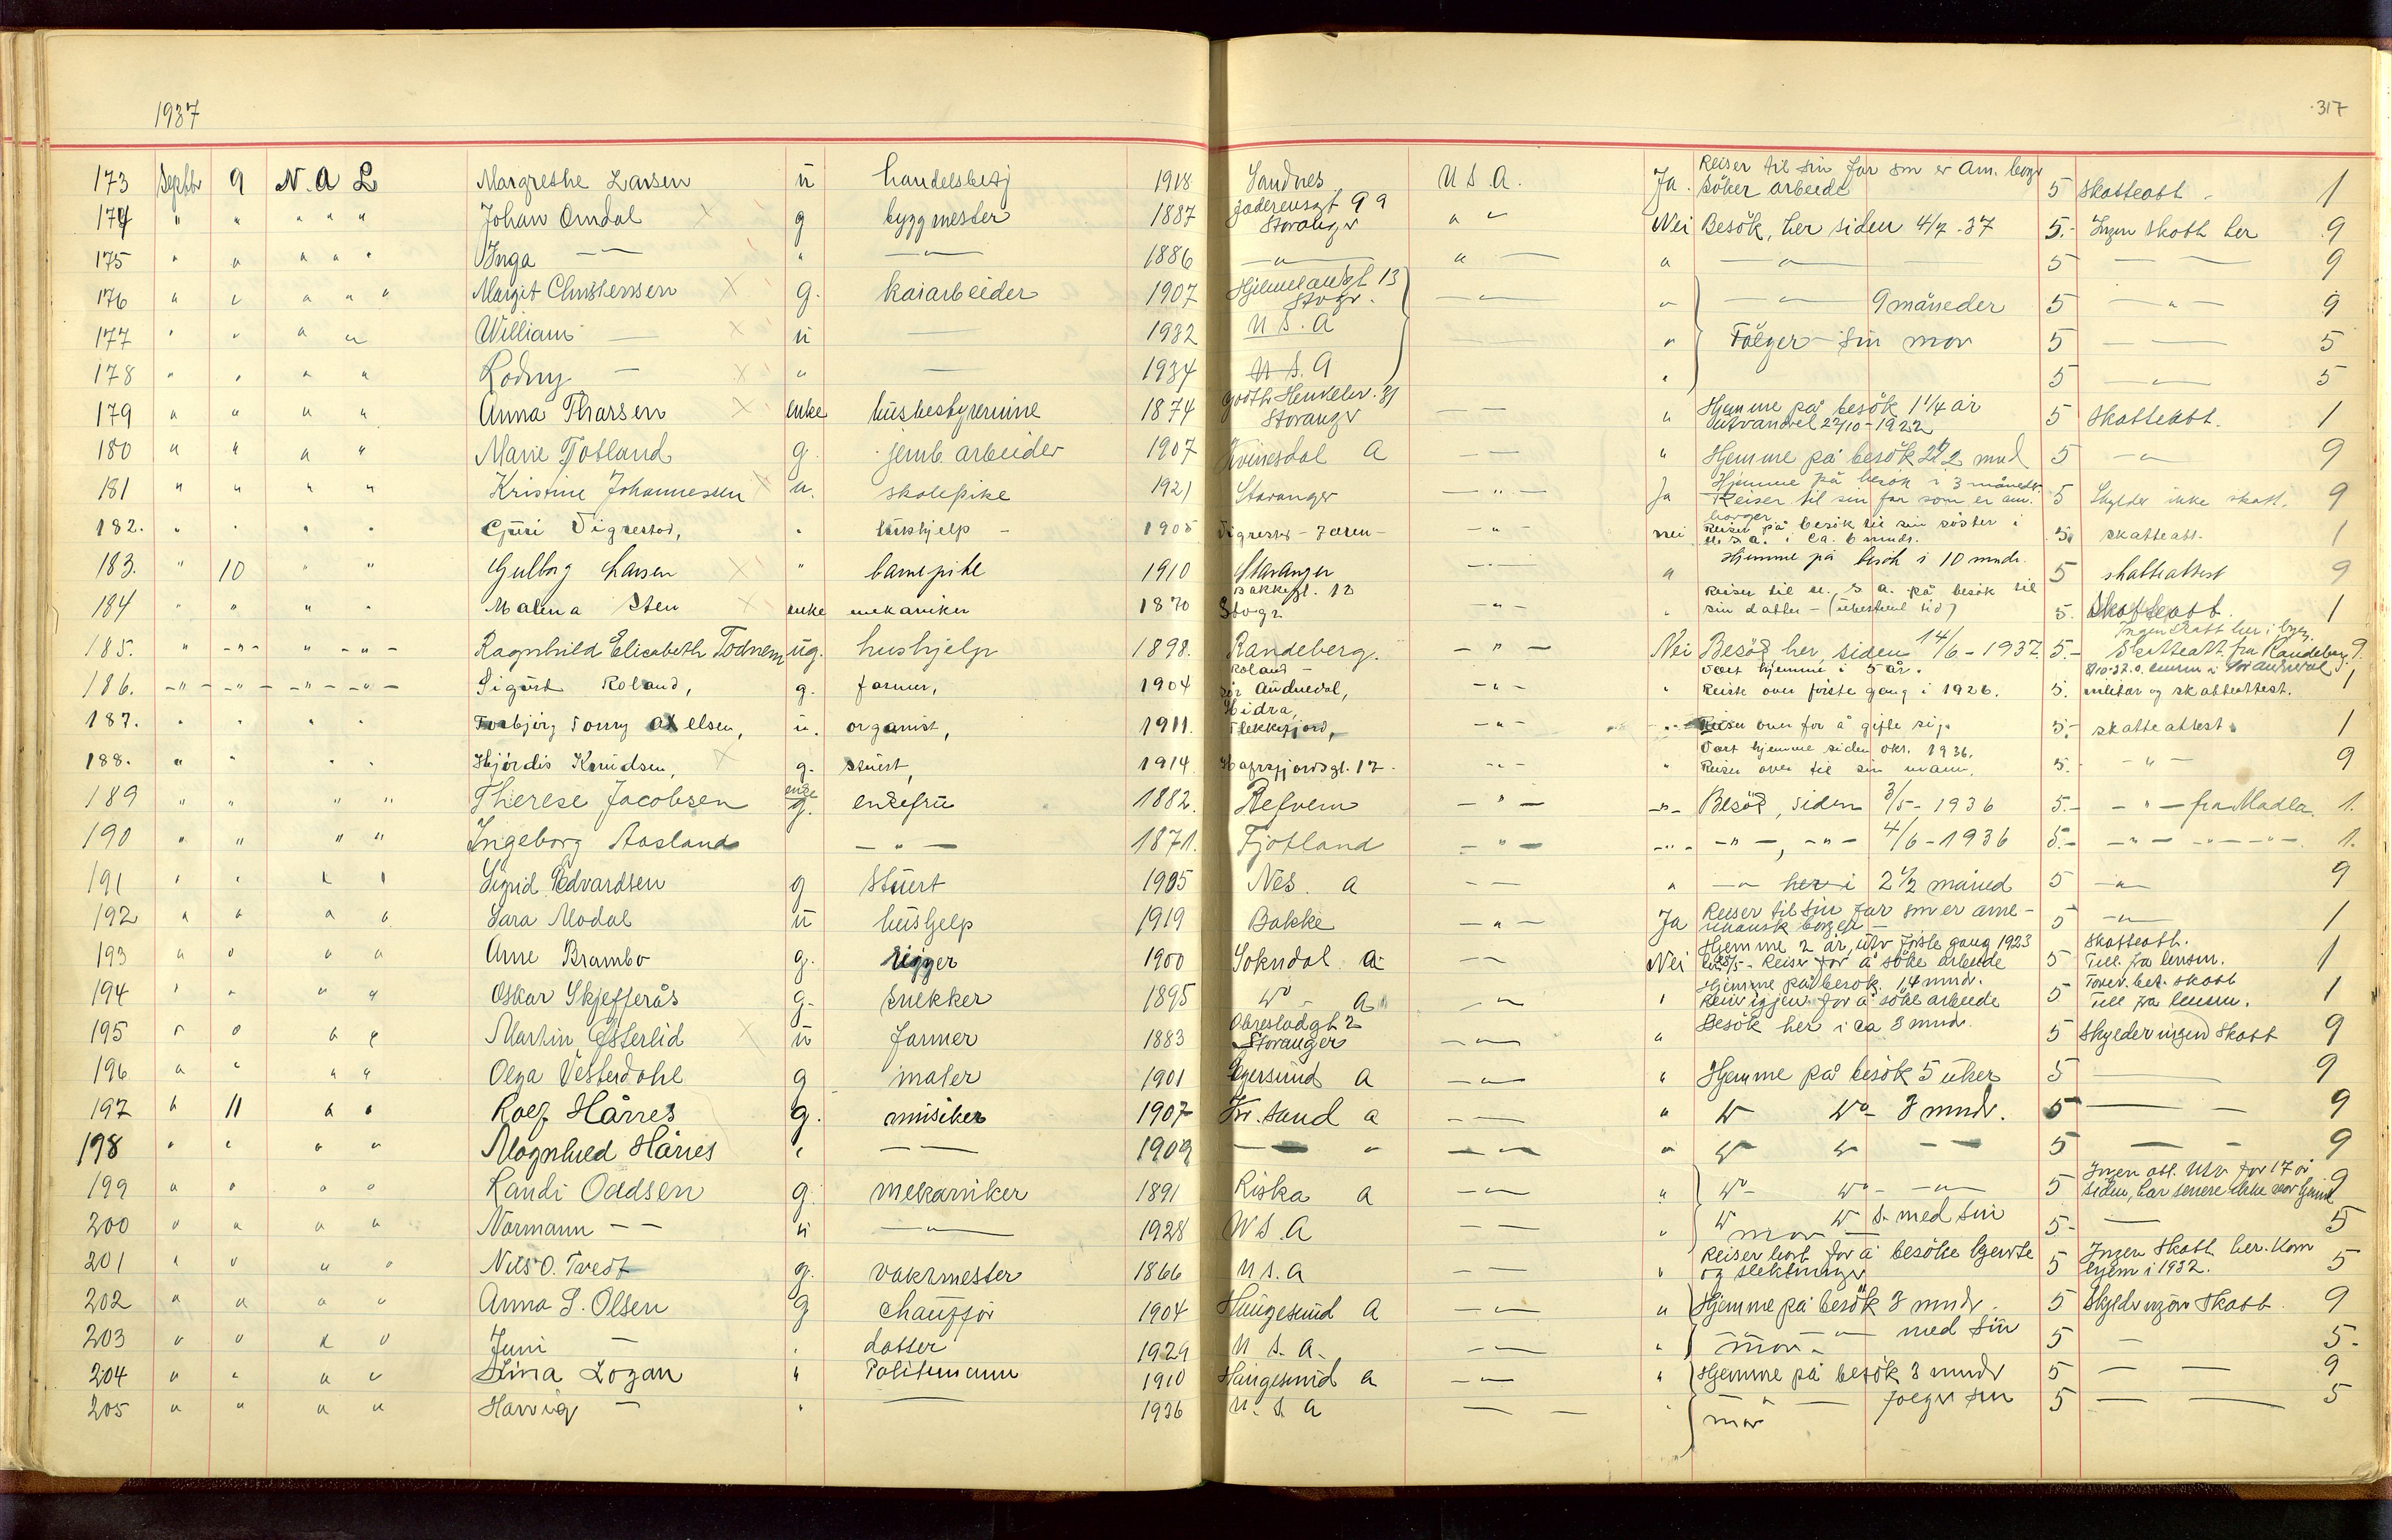 1937
317
173 Septbr 9 N. A L Margrethe Larsen u handelsbetj 1918 Sandnes U S A. Ja. Reiser til sin far som er Am. borger søker arbeide 5 Skatteatt. 1
174 " " " " " Johan Omdal g byggmester 1887 Jaderensgt 99 Stavanger " " Nei Besøk, her siden 4/7. 37 5.- Ingen skatt her 9
175 " " " " " Inga — " — " — 1886 — " — " — " — " — 5 — — 9
176 " " " " " Margit Christensen g. kaiarbeider 1907 13 Stvgr. — " — " — " — 9 måneder 5 — " — 9
177 " " " " William — u — 1932 U S. A " Følger sin mor 5 — — 5
178 " " " " Rodny — " — 1934 U S. A " 5 — " — 5
179 " " " " Anna Tharsen enke husbestyrerinne 1874 31 Stavanger — — " Hjemme på besøk 1 1/4 år utvandret 22/10 - 1922 5 Skatteatt. 1
180 " " " " Marie Fjotland g. jernb. arbeider 1907 Kvinesdal A — — " Hjemme på besøk 2 1/2 mnd 5 — " 9
181 " " " " Kristine Johannessen u. skolepike 1921 Stavanger — " — Ja Hjemme på besøk i 3 måneder. Reiser til sin far som er am. borger 5 Skylder ikke skatt. 9
182. " " " " Guri Vigrestad, " hushjelp - 1905 Vigrestad - Jæren - — " — nei Reiser på besøk til sin søster i U. S. A. i ca. 6 mndr. 5. skatteatt. 1
183. " 10 " " Gulborg Larsen " barnepike 1910 Stavanger — " — " Hjemme på besøk i 10 mndr. 5 skatteattest 9
184 " " " " Malena Sten enke mekaniker 1870 Bakkegt. 12 Stvgr. — " — " Reiser til U. S A. på besøk til sin datter - (ubestemt tid) 5. Skatteatt. 1
185. " - " - " - " - Ragnhild Elisabeth Todnem ug. hushjelp 1898. Randeberg. — " — Nei Besøg her, siden 14/6 - 1937 5.- Ingen skatt her i byen. Skatteatt. fra Randeberg 9.
186. - " - - " - - " - - " - Sigurd Roland, g. farmer, 1904 Roland Sør Audnedal, — " — " Vært hjemme i 5 år. Reiste over første gang i 1926. 5. militær og skatteattest. 1
187. " " " " Torbjørg Tonny Axelsen, u. organist, 1911. Hidra, Flekkefjord, — " — " Reiser over for å gifte sig. 5.- skatteattest. 1
188. " " " " Hjørdis Knudsen, g. stuert, 1914 Hafrsfjordsgt. 17. — " — " Vært hjemme siden okt. 1936. Reiser over til sin mann. 5. — " — 9
189 " " " " Therese Jacobsen enke g. enkefru 1882. Refvem — " — - " - Besøg, siden 3/5 - 1936 5.- — " — fra Madla. 1.
190 " " " " Ingeborg Aasland — " — 1871. Fjotland — " — - " - - " -, - " - 4/6 - 1936 5.- — " — - " - 1.
191 " " " " Sigrid Edvardsen g stuert 1905 Nes. a — — " — " her i 2 1/2 måned 5 — " — 9
192 " " " " Sara Modal u hushjelp 1919 Bakke — " — Ja Reiser til sin far som er amerikansk borger — 5 — " — 1
193 " " " " Arne Brambo g. rigger 1900 Sokndal a — — Nei Hjemme 2 år, utv. første gang 1923 - Reiser for å søke arbeide 5 Skatteatt. Till. fra lensm. 1
194 " " " " Oskar Skjefferås g. snekker 1895 do - a — " " Hjemme på besøk. 14 mndr. Reiser igjen for å søke arbeide 5 skatt Till fra lensm. 1
195 " " " " Martin Østerlid u farmer 1883 Obrestadgt 2 Stavanger — " — " Besøk her i ca 3 mndr. 5 Skylder ingen skatt 9
196 " " " " Olga Vesterdahl g maler 1901 Egersund a — " — " Hjemme på besøk 5 uker 5 — 9
197 " 11 " " Rolf Hårres g. musiker 1907 Kr. sand a — — " do do - 3 mndr. 5 — — 9
198 " " " " Magnhild Hårres " — — 1909 — " — — " do do — — 5 — - 9
199 " " " " Randi Oddsen g. mekaniker 1891 Riska a — " — " do - do - — " — 5 Ingen att. Utv for 17 år siden, har senere ikke vært hjemme 9
200 " " " " Normann — — u — " — 1928 U S. A — — " do do s. med sin mor — 5- — 5
201 " " " " Nils O. Tvedt g. vaktmester 1866 U S. A — — " Reiser bort for å besøke hjemste og slektninger 5 Ingen Skatt her. Kom hjem i 1932. 5
202 " " " " Anna S. Olsen g chauffør 1904 Haugesund A — " — " Hjemme på besøk 3 mndr. 5 Skylder ingen skatt. 9
203 " " " " Juni — " datter 1929 U S. A. — " — " — " — med sin mor - 5 — 5-
204 " " " " Stina Logan " Politimann 1910 Haugesund a — " — " Hjemme på besøk 3 mndr 5 — — 9
205 " " " " Harvig — " — 1936 U. S. A — — " — " — følger sin mor 5 — — 5